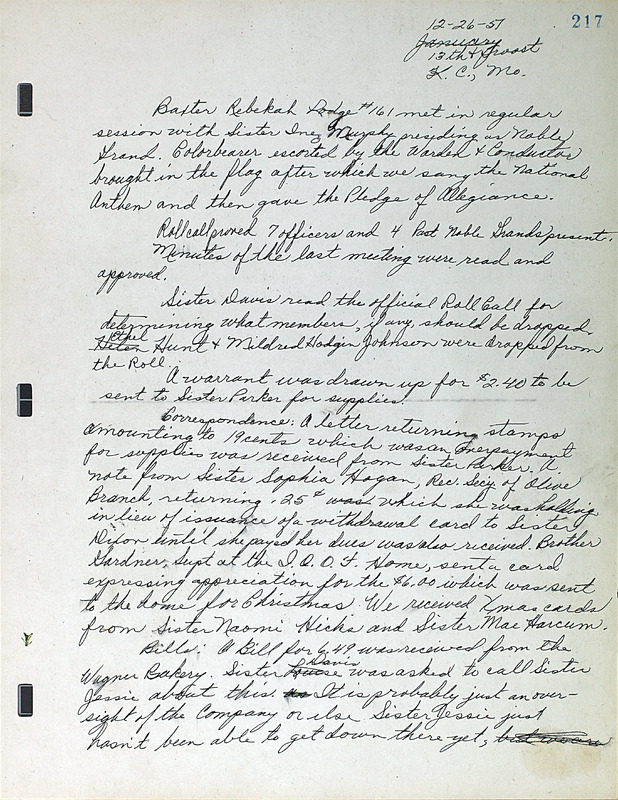 217
12-26-57
January
13th & Troost
K.C., Mo.
Baxter Rebekah Lodge #161 met in regular
session with Sister Inez Murphy presiding as Noble
Grand. Colorbearer escorted by the Warden & Conductor
brought in the flag after which we sang the National
Anthem and then gave the Pledge of Allegiance.
Roll call proved 7 officers and 4 Past Noble Grands present.
Minutes of the last meeting were read and
approved.
Sister Davis read the official Roll Call for
determining what members, if any, should be dropped.
Ethel
Helen Hunt & Mildred Hodgin Johnson were dropped from
the Roll.
A warrant was drawn up for $2.40 to be
sent to Sister Parker for supplies.
Correspondence: A letter returning stamps
amounting to 19 cents which was an overpayment
for supplies was received from Sister Parker. A
note from Sister Sophia Hogan, Rec. Secy. of Olive
Branch, returning .25¢ was which she was holding
in lieu of issuance of a withdrawal card to Sister
Dixon until she payed her dues was also received. Brother
Gardner, Supt at the I.O.O.F. Home, sent a card
expressing appreciation for the $6.00 which was sent
to the home for Christmas. We received Xmas cards
from Sister Naomi Hicks and Sister Mae Harcum.
Bills: A Bill for 6.49 was received from the
Davis
Wagner Bakery. Sister Louise was asked to call Sister
Jessie about this. It is probably just an over-
sight of the Company or else Sister Jessie just
hasn't been able to get down there yet,